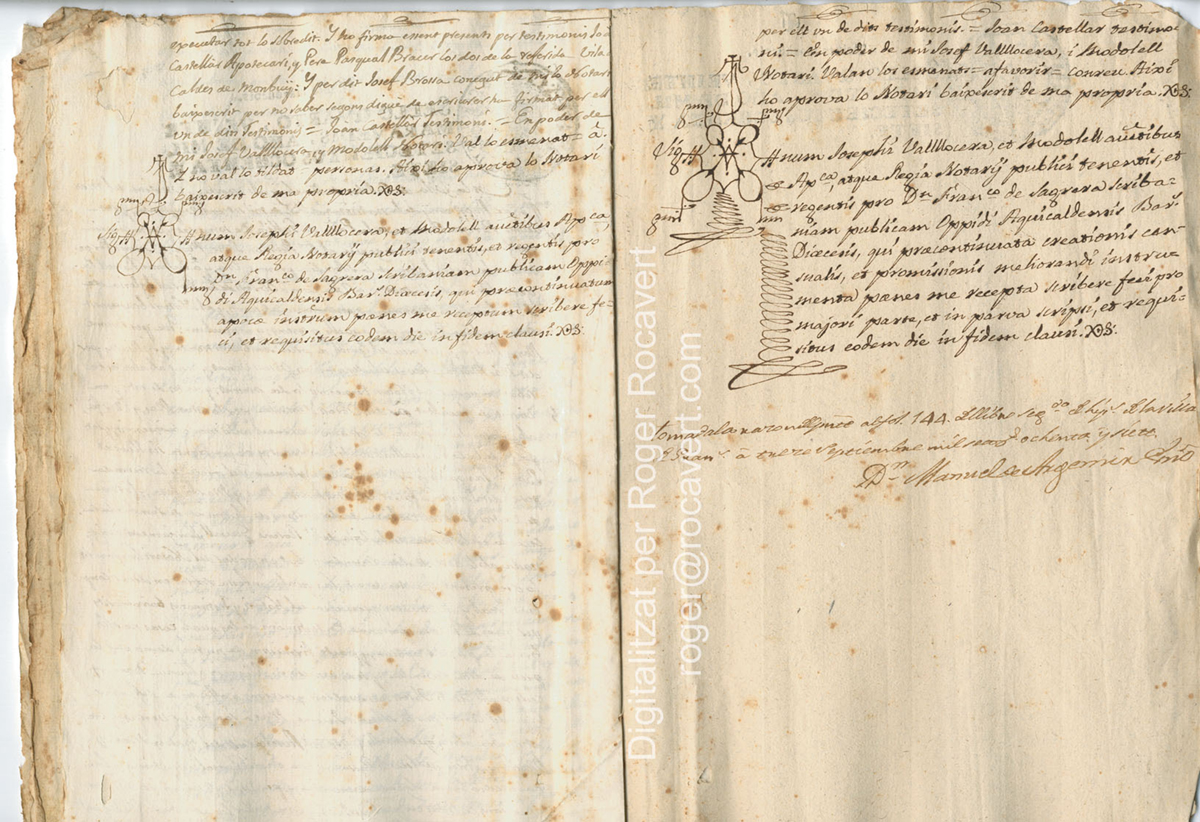 executar tot lo sobredit. Y ho firma essent presents per testimonis Joan
Castellar Apotecari, y Pere Pasqual Bracer los dos de la referida Vila
Caldes de Monbuy: Y per dit Josef Brossa conegut de mi lo Notari
baixescrit per no saber segons digué de escriurer ho ha firmat per ell
un de dits Testimonis = Joan Castellar Testimoni. = En poder de
mi Josef Vallllocera, y Modolell Notari. Val lo esmenat = á.
Y no val lo tildat = personas. Aixi ho aprova lo Notari
baixescrit de ma propria.
Sig num Josephi Vallllocera, et Modolell auctibus Apca,
atque Regiâ Notarij publici tenentis, et regentis pro
Dn. Franco de Sagrera scribaniam publicam Oppi-
di Aquicaldensis Bar. Diœcesis, qui præcontinuatum
apocæ instrum pœnes me receptum scribere fe-
ci, et requisitus eodem die in fidem clausi.
per ell un de dits testimonis = Joan Castellar testimo-
ni. = En poder de mi Josef Vallllocera, i Modolell
Notari. Valan los esmenats = a favorir = conreu Aixi
ho aprova lo Notari baixescrit de ma propria.
Sig num Josephi Vallllocera, et Modolell auctibus
Apca, atque Regiâ Notarij publici tenentis, et
regentis pro Dn. Franco de Sagrera scriba-
niam publicam Oppidi Aquicaldensis Bar.
Diœcesis, qui præcontinuata creationis cen-
sualis, et promissionis meliorandi instru-
menta pœnes me recepta scribere feci pro
majori parte, et in parva scripsi, et requi-
situs eodem die in fidem clausi.
tomada la razon al fol. 144. del libro seg.do de hip.s de la villa
á trece Septiembre mil setg.s ochenta y siete.
Dn. Manuel de Argemir
Digitalitzat per Roger Rocavert
roger@rocavert.com